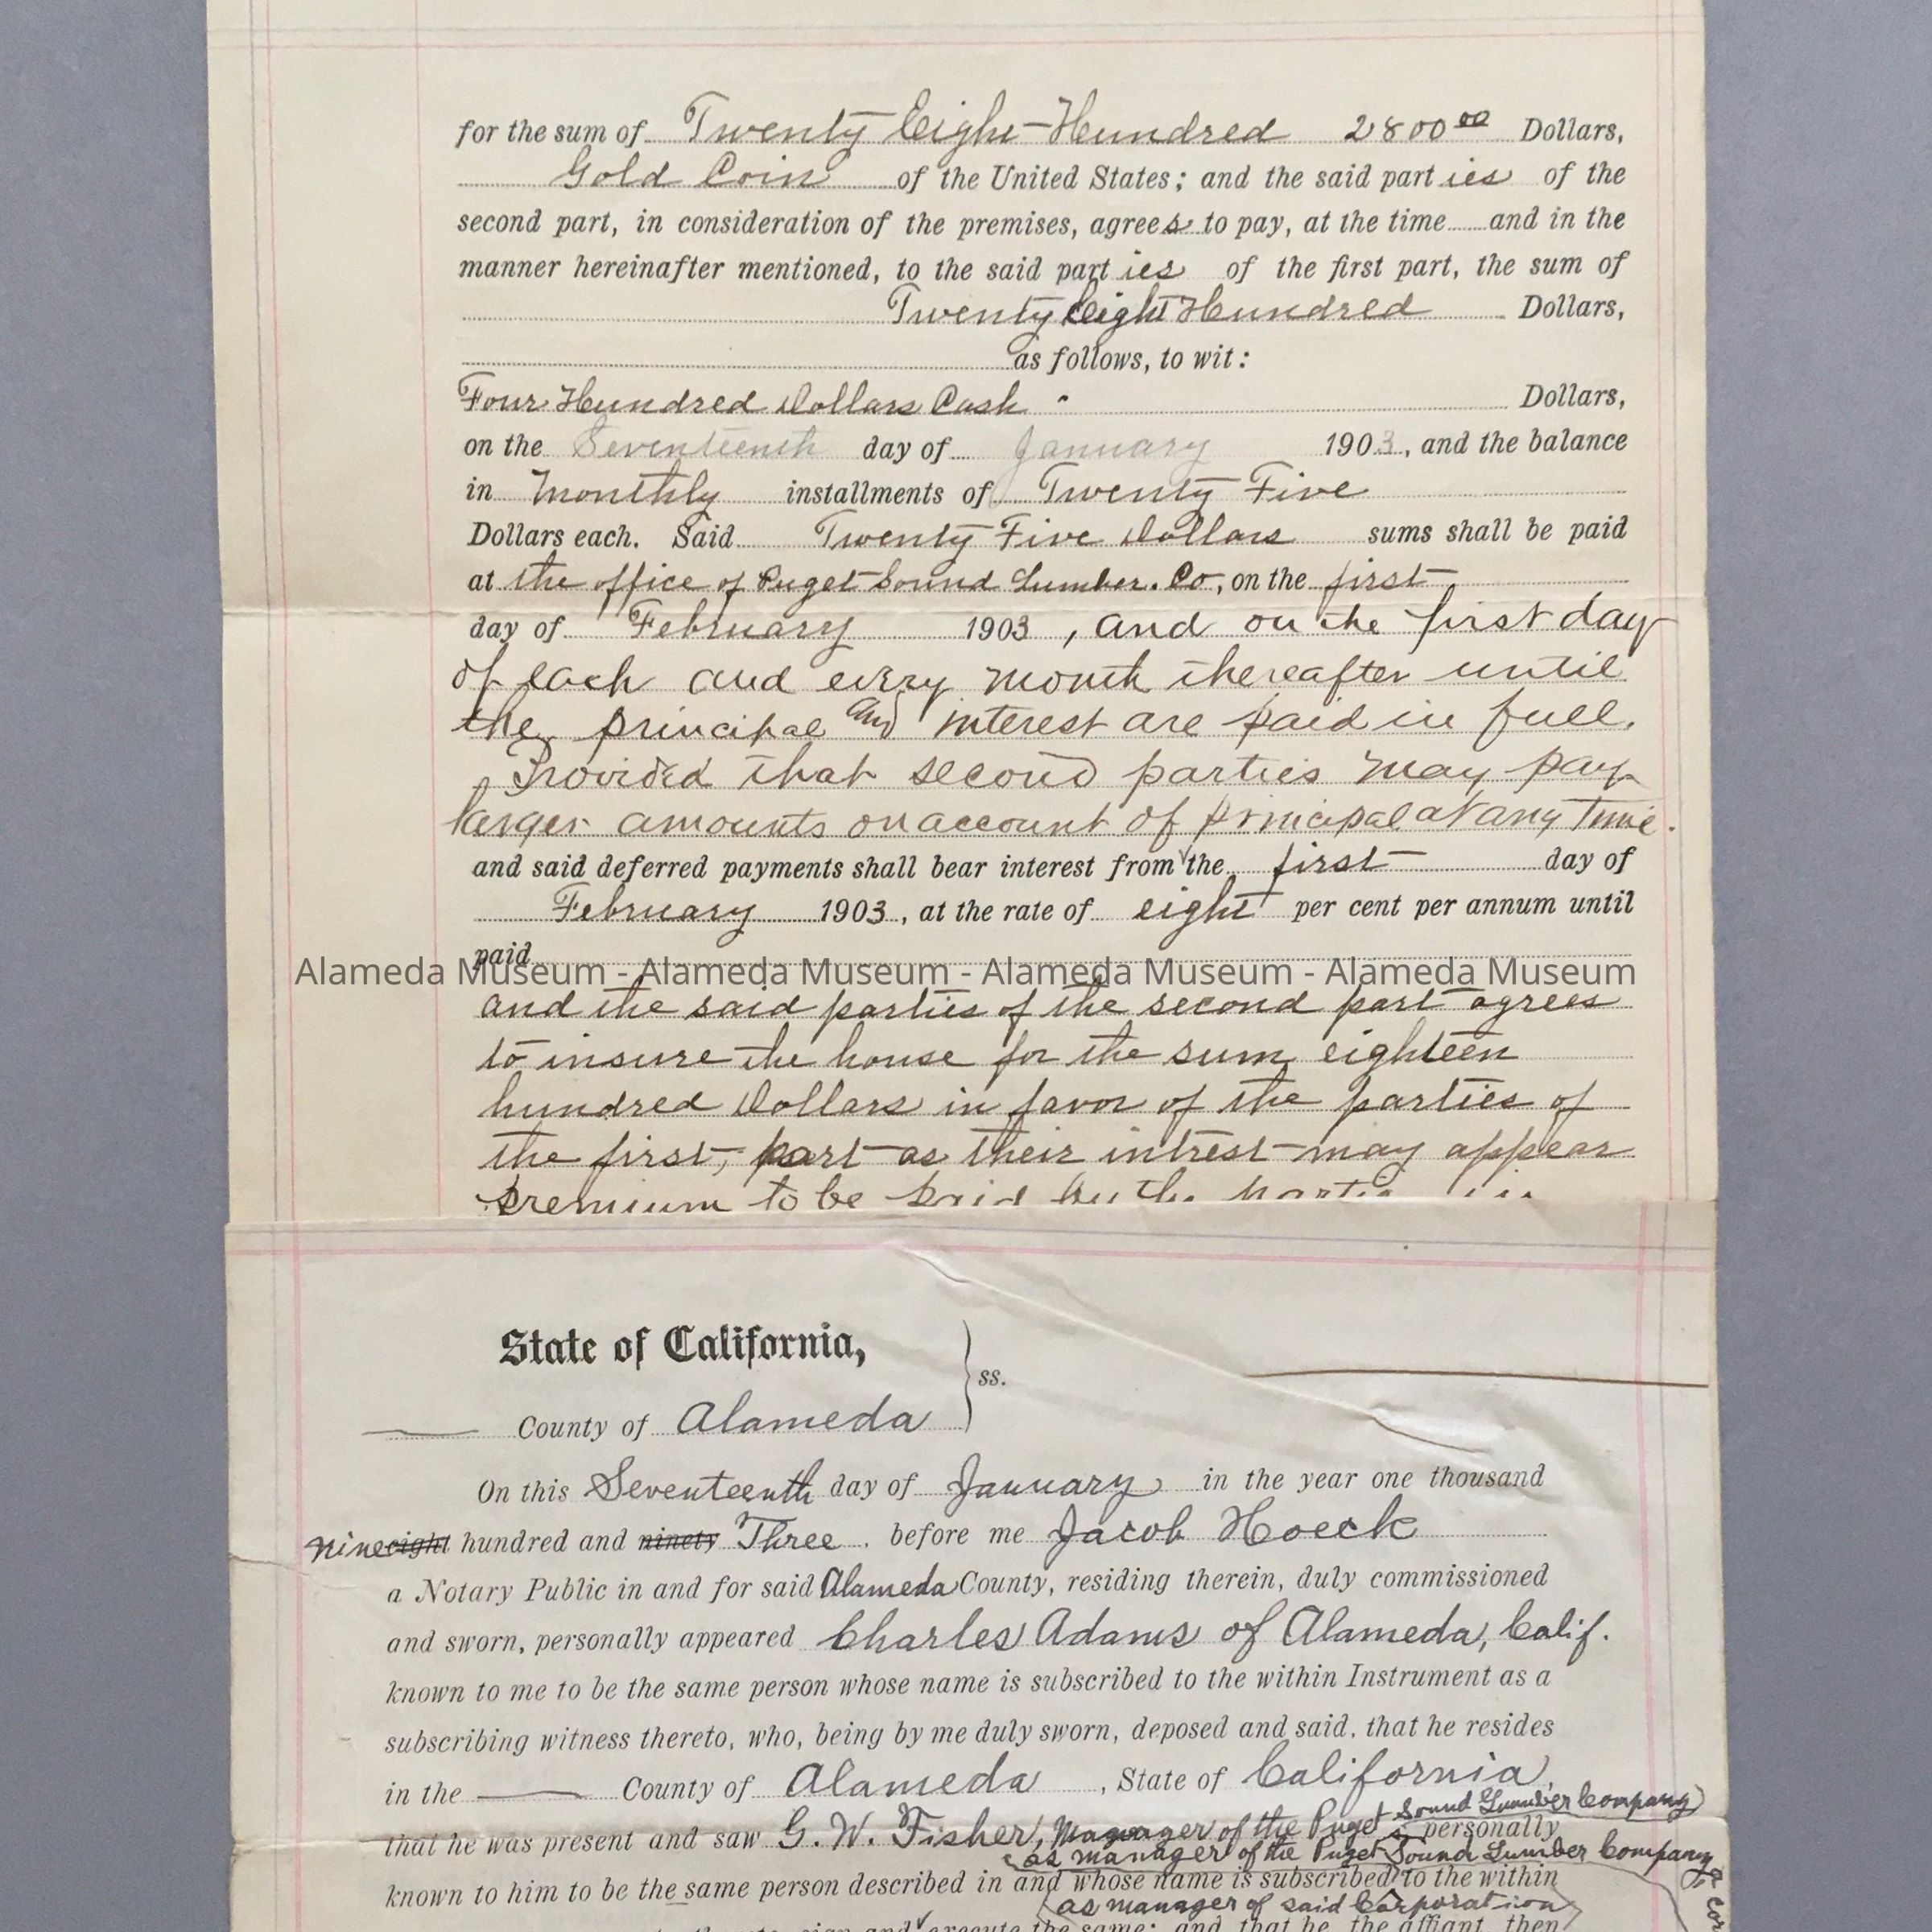 for the sum of Twenty Eight Hundred 2800 00 Dollars,
Gold Coin of the United States; and the said parties of the
second part, in consideration of the premises, agrees to pay, at the time and in the
manner hereinafter mentioned, to the said parties of the first part, the sum of
Twenty Eight Hundred Dollars,
as follows, to wit:
Four Hundred Dollars Cash Dollars,
on the Seventeenth day of January 1903, and the balance
in Monthly installments of Twenty Five
Dollars each. Said Twenty Five Dollars sums shall be paid
at the office of Puget Sound Lumber. Co, on the first
day of February 1903, and on the first day
of each and every month thereafter until
the principal and interest are paid in full.
Provided that second parties may pay
larger amounts on account of principal at any time.
and said deferred payments shall bear interest from the first day of
February 1903, at the rate of eight per cent per annum until
paid
Alameda Museum - Alameda Museum - Alameda Museum - Alameda Museum
and the said parties of the second part agrees
to insure the house for the sum eighteen
hundred Dollars in favor of the parties of
the first, part as their intrest may appear
premium to be paid by the
State of California,
ss.
County of Alameda
On this Seventeenth day of January in the year one thousand
nine eight hundred and ninety Three. before me Jacob Hoeck
a Notary Public in and for said Alameda County, residing therein, duly commissioned
and sworn, personally appeared Charles Adams of Alameda, Calif.
known to me to be the same person whose name is subscribed to the within Instrument as a
subscribing witness thereto, who, being by me duly sworn, deposed and said, that he resides
in the County of Alameda, State of California,
that he was present and saw G. W. Fisher, Manager of the Puget Sound Lumber Company personally
as manager of the Puget Sound Lumber Company
known to him to be the same person described in and whose name is subscribed to the within
as manager of said Corporation
execute the same; and that he, the affiant, then